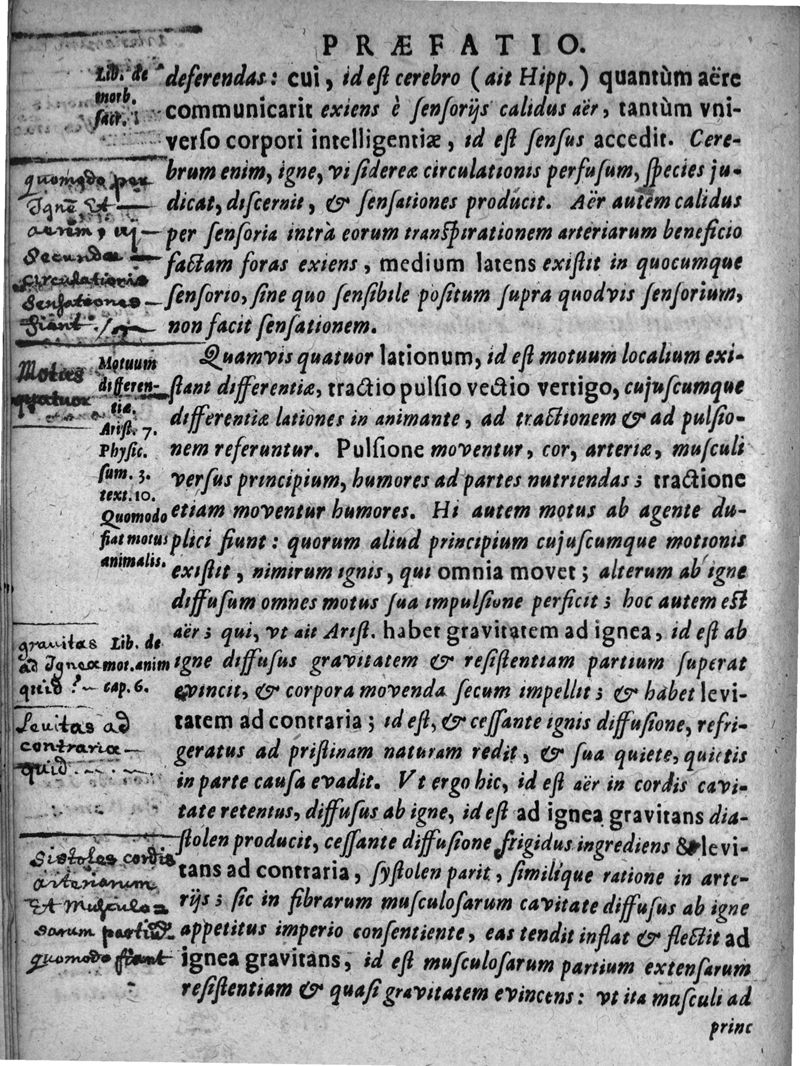 PRÆFATIO.
Lib. de
morb.
sacr. 1
deferendas: cui, id eſt cerebro (ait Hipp.) quantùm aëre
communicarit exiens è ſenſorijs calidus aër, tantùm vni-
verſo corpori intelligentiæ, id eſt ſenſus accedit. Cere-
brum enim, igne, vi ſidereæ circulationis perfuſum, ſpecies ju-
dicat, diſcernit, & ſenſationes producit. Aër autem calidus
per ſenſoria intrà eorum tranſpirationem arteriarum beneficio
factam foras exiens, medium latens exiſtit in quocumque
ſenſorio, ſine quo ſenſibile poſitum ſupra quodvis ſenſorium,
non facit ſenſationem.
quomodo per
Ignē Et
aerem,
Secundæ
circulationis
Sensationes
fiant
Quamvis quatuor lationum, id eſt motuum localium exi-
ſtant differentiæ, tractio pulſio vectio vertigo, cujuſcumque
differentiæ lationes in animante, ad tractionem & ad pulſio-
nem referuntur. Pulſione moventur, cor, arteriæ, muſculi
verſus principium, humores ad partes nutriendas; tractione
etiam moventur humores. Hi autem motus ab agente du-
plici fiunt: quorum aliud principium cujuſcumque motionis
exiſtit, nimirum ignis, qui omnia movet; alterum ab igne
diffuſum omnes motus ſua impulſione perficit; hoc autem eſt
aër; qui, vt ait Ariſt. habet gravitatem ad ignea, id eſt ab
igne diffuſus gravitatem & reſiſtentiam partium ſuperat
evincit, & corpora movenda ſecum impellit; & habet levi-
tatem ad contraria; id eſt, & ceſſante ignis diffuſione, refri-
geratus ad priſtinam naturam redit, & ſua quiete, quietis
in parte cauſa evadit. Vt ergo hic, id eſt aër in cordis cavi-
tate retentus, diffuſus ab igne, id eſt ad ignea gravitans dia-
ſtolen producit, ceſſante diffuſione frigidus ingrediens & levi-
tans ad contraria, ſyſtolen parit, ſimilique ratione in arte-
rijs; ſic in fibrarum muſculoſarum cavitate diffuſus ab igne
appetitus imperio conſentiente, eas tendit inflat & flectit ad
ignea gravitans, id eſt muſculoſarum partium extenſarum
reſiſtentiam & quaſi gravitatem evincens: vt ita muſculi ad
princ
Motus
quatuor
Motuum
differen-
tiæ.
Ariſt. 7.
Phyſic.
ſum. 3.
text. 10.
Quomodo
fiat motus
animalis.
gravitas
ad Ignea
quid?
Lib. de
mot. anim
cap. 6.
Levitas ad
contraria
quid
Sistoles cordis
arteriarum
Et Musculo
sarum partiū
quomodo fiant